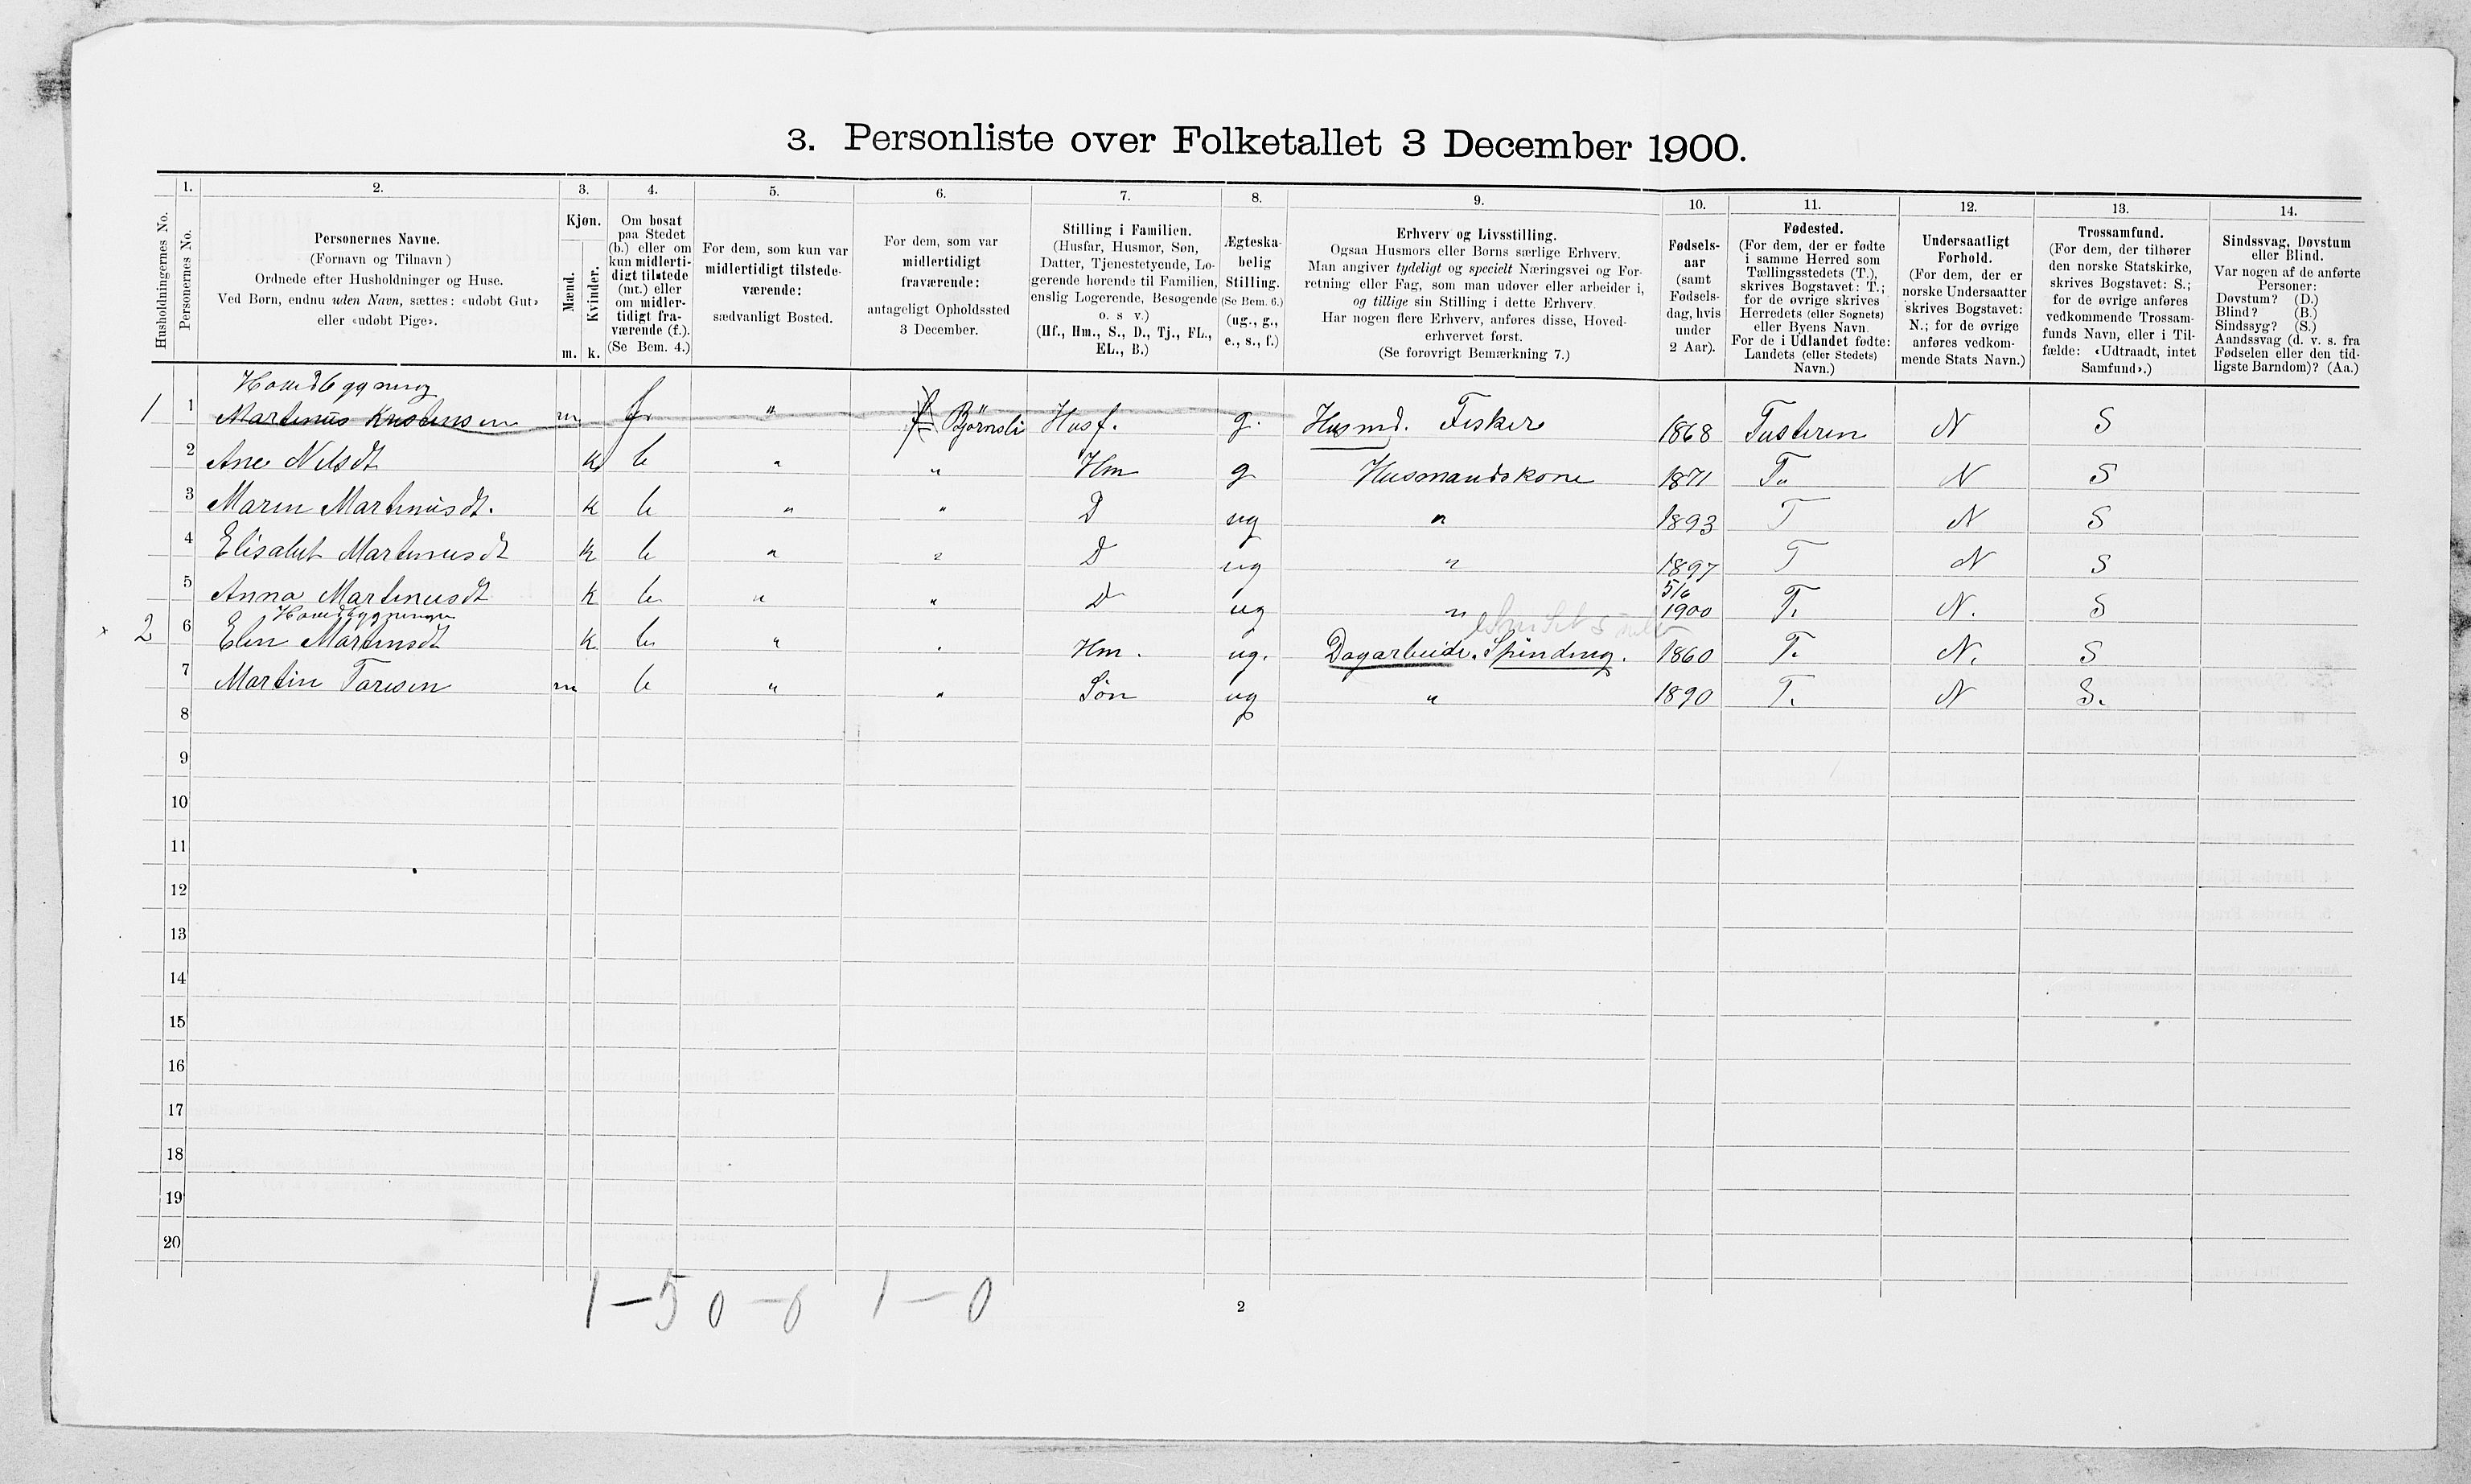 3. Personliste over Folketallet 3 December 1900.
Husholdningernes No.
1.
Personernes No.
2.
Personernes Navne.
(Fornavn og Tilnavn)
Ordnede efter Husholdninger og Huse.
Ved Børn, endnu uden Navn, sættes: «udøbt Gut»
eller «udøbt Pige».
3.
Kjøn.
Mænd.
Kvinder.
m. k.
4.
Om bosat
paa Stedet
(b.) eller om
kun midlerti-
digt tilstede
(mt.) eller
om midler-
tidigt fra-
værende (f.).
(Se Bem. 4.)
5.
For dem, som kun var
midlertidigt tilstede-
værende:
sædvanligt Bosted.
6.
For dem, som var
midlertidigt
fraværende:
antageligt Opholdssted
3 December.
7.
Stilling i Familien.
(Husfar, Husmor, Søn,
Datter, Tjenestetyende, Lo-
gerende hørende til Familien,
enslig Logerende, Besøgende
o. s v.)
(Hf., Hm., S., D., Tj., FL.,
EL., B.)
8.
Ægteska-
belig
Stilling.
(Se Bem. 6.)
(ug., g.,
e., s., f.)
9.
Erhverv og Livsstilling.
Ogsaa Husmors eller Børns særlige Erhverv.
Man angiver tydeligt og specielt Næringsvei og For-
retning eller Fag, som man udøver eller arbeider i,
og tillige sin Stilling i dette Erhverv.
Har nogen flere Erhverv, anføres disse, Hoved-
erhvervet først.
(Se forøvrigt Bemærkning 7.)
10.
Fødsels-
aar
(samt
Fødsels-
dag, hvis
under
2 Aar).
11.
Fødested.
(For dem, der er fødte
i samme Herred som
Tællingsstedets (T.),
skrives Bogstavet: T.;
for de øvrige skrives
Herredets (eller Sognets)
eller Byens Navn.
For de i Udlandet fødte:
Landets (eller Stedets)
Navn.)
12.
Undersaatligt
Forhold.
(For dem, der er
norske Undersaatter
skrives Bogstavet:
N.; for de øvrige
anføres vedkom-
mende Stats Navn.)
13.
Trossamfund.
(For dem, der tilhører
den norske Statskirke,
skrives Bogstavet: S.;
for de øvrige anføres
vedkommende Trossam-
funds Navn, eller i Til-
fælde: «Udtraadt, intet
Samfund».)
14.
Sindssvag, Døvstum
eller Blind.
Var nogen af de anførte
Personer:
Døvstum? (D.)
Blind? (B.)
Sindssyg? (S.)
Aandssvag (d. v. s. fra
Fødselen eller den tid-
ligste Barndom)? (Aa.)
Hovedbygning
1 1 Martinus Kristensen m f " f Björnsli Husf. g. Husmd. Fisker 1868 Tusteren N S
2 Ane Nilsdt k b " " Hm g Husmandskone 1871 T. N S
3 Maren Martinusdt. k b " " D ug " 1893 T N S
4 Elisabet Martinusdt k b " " D ug " 1897 T N S
5 Anna Martinusdt k b " " D ug " 5/6 1900 T. N. S
Hovedbygningen
2 6 Elen Martinsdt k b " " Hm. ug. Dagarbeide. Spinding. 1860 T. N. S
7 Martin Taresen m b " " Søn ug " 1890 T. N S.
8
9
10
11
12
13
14
15
16
17
18
19
20
1 — 5 0 — 0 1 — 0
2